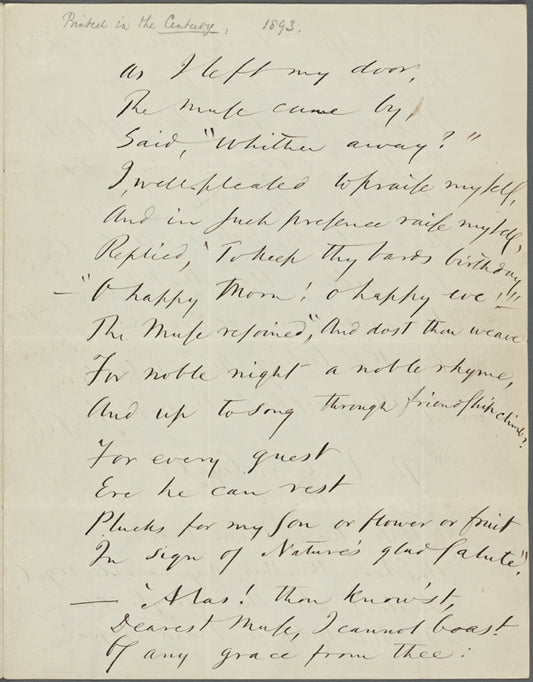 Printed in the Century, 1893.
As I left my door,
The Muse came by,
Said, "Whither away?"
I, well-pleased to praise myself,
And in such presence raise myself,
Replied, "To keep thy bards birthday."
— "O happy Morn! o happy eve!"
The Muse rejoined, "And dost thou weave
For noble night a noble rhyme,
And up to song through friendship climb?
For every guest
Ere he can rest
Plucks for my Son or flower or fruit
In sign of Nature's glad Salute."
— 'Alas! thou know'st,
Dearest Muse, I cannot boast
Of any grace from thee: